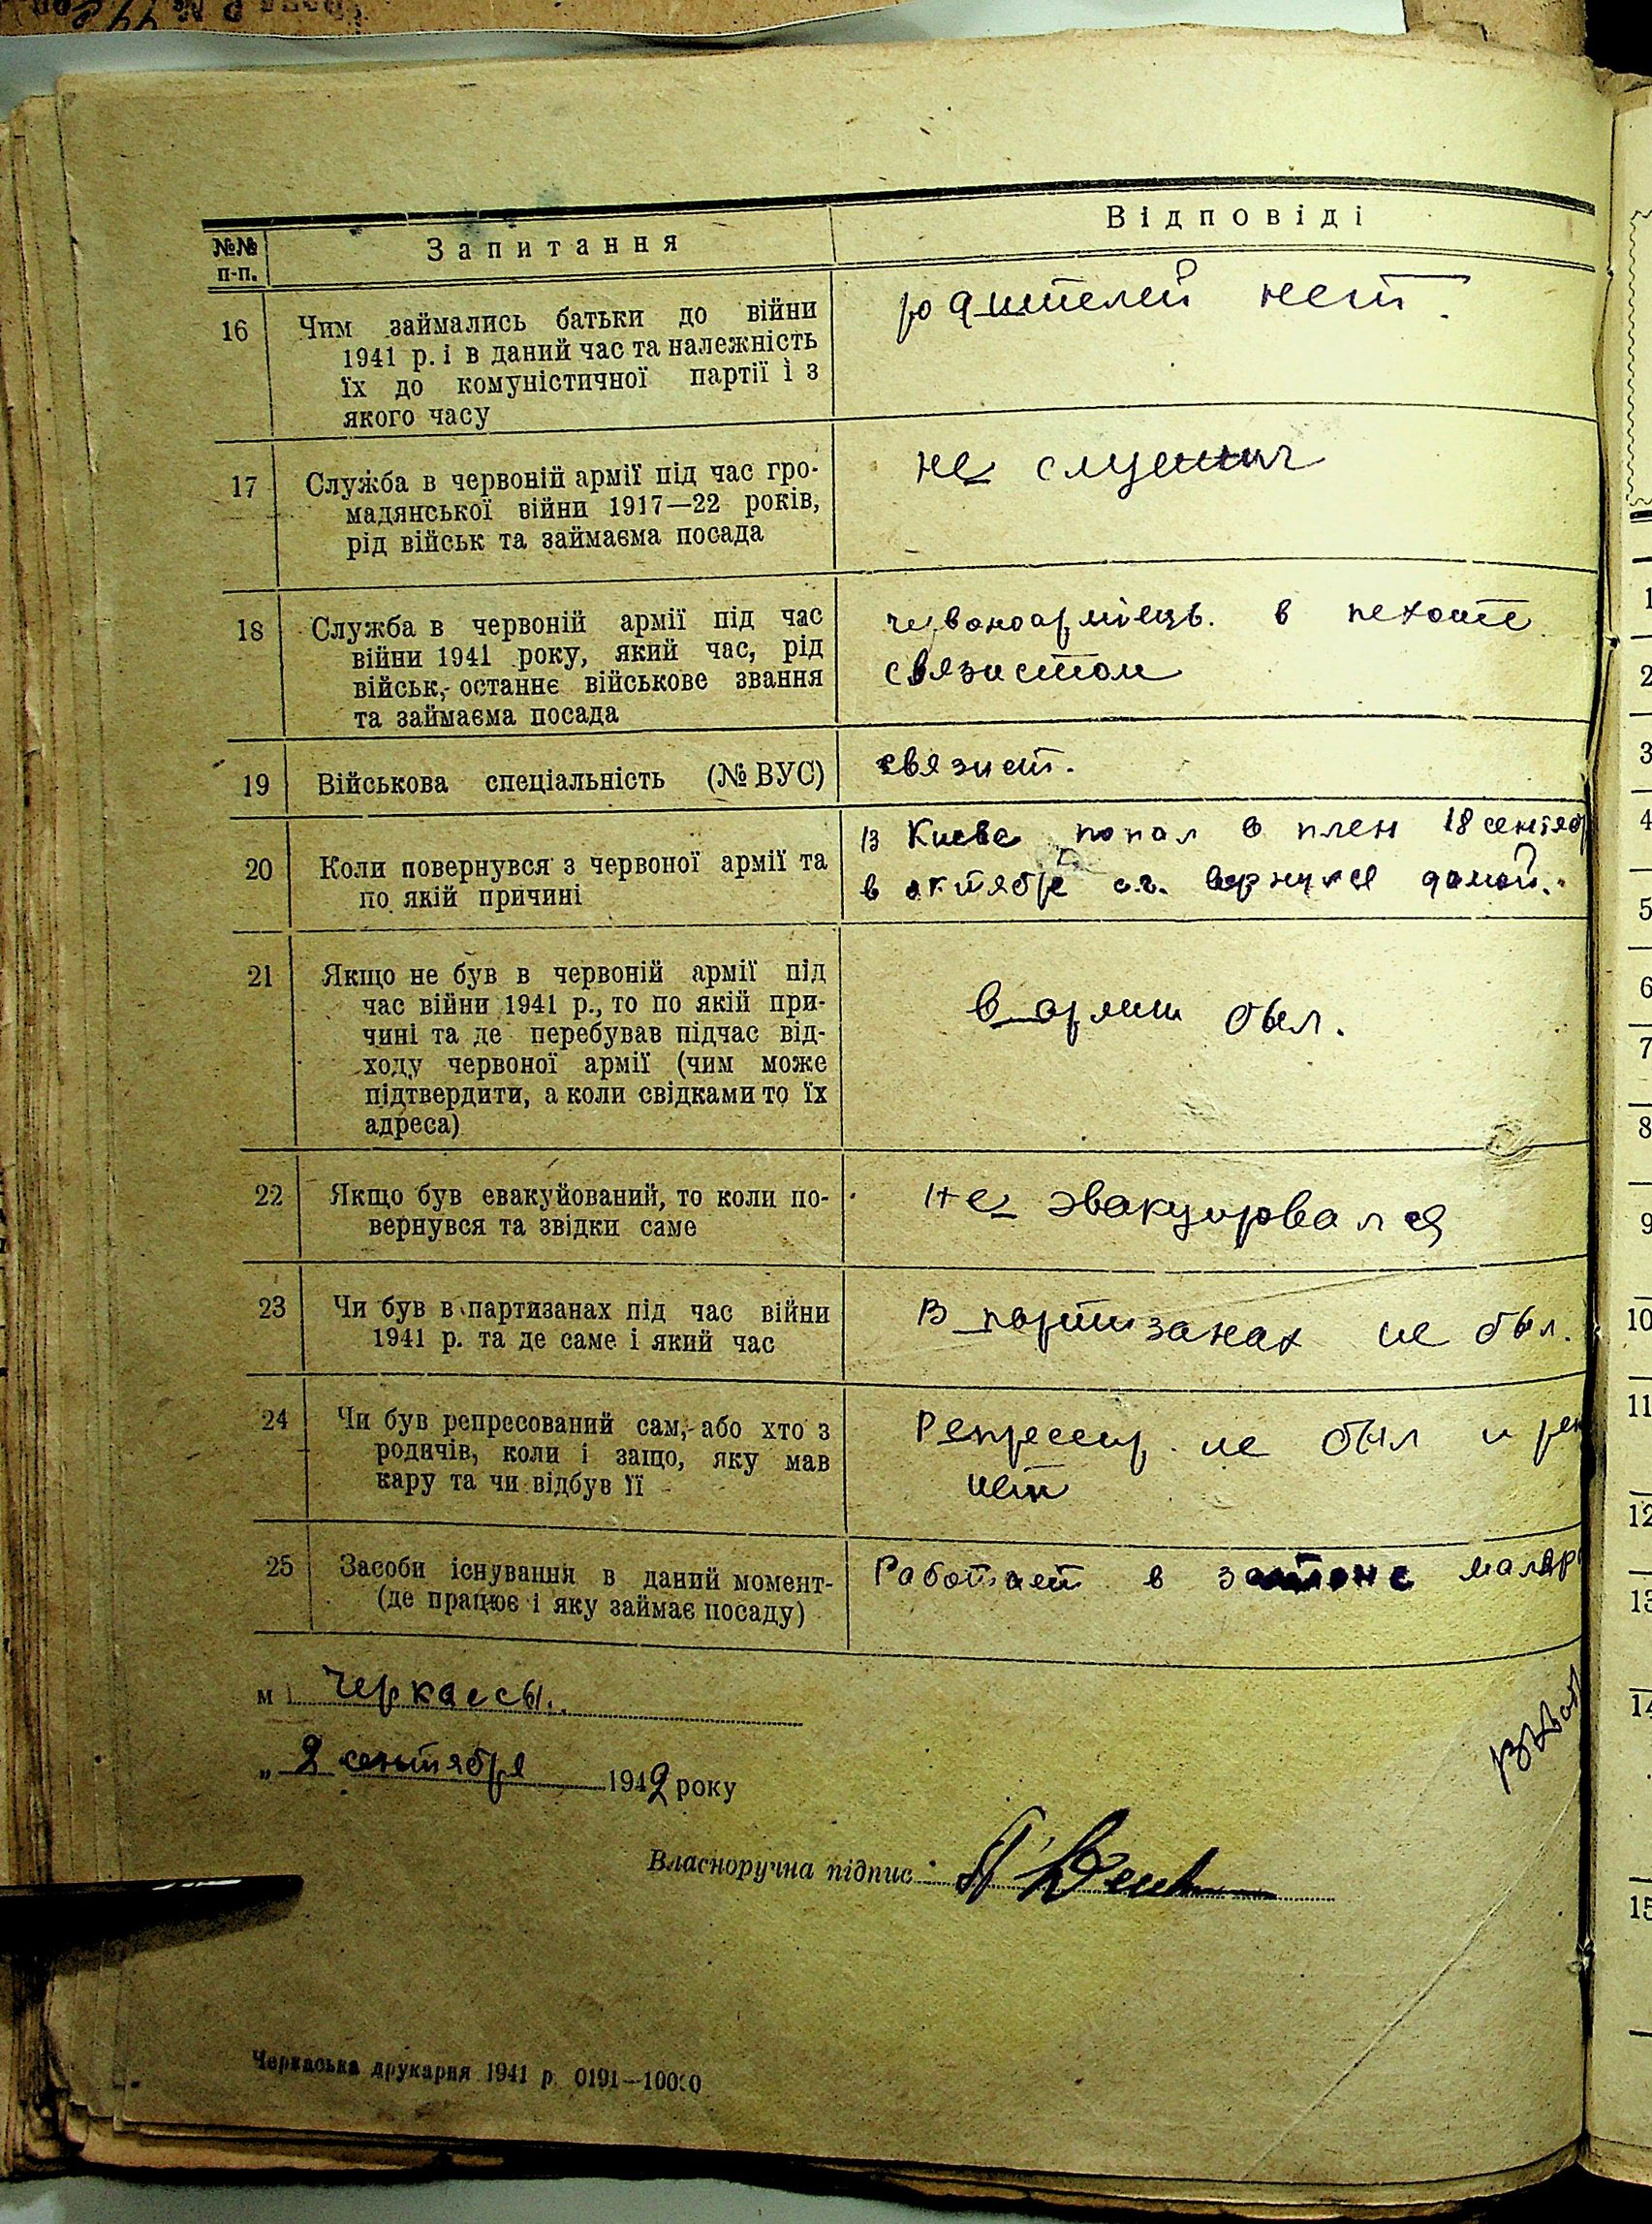 №№ п-п.
Запитання
Відповіді
16
Чим займались батьки до війни
1941 р. і в даний час та належність
їх до комуністичної партії і з
якого часу
родителей нет.
17
Служба в червоній армії під час гро-
мадянської війни 1917—22 років,
рід військ та займаєма посада
не служил
18
Служба в червоній армії під час
війни 1941 року, який час, рід
військ, останнє військове звання
та займаєма посада
червоноармiець. в пехоте
связистом
19
Військова спеціальність (№ ВУС)
связист.
20
Коли повернувся з червоної армії та
по якій причині
В Киеве попал в плен 18 сентяб
в октябре с.г. вернулся домой.
21
Якщо не був в червоній армії під
час війни 1941 р., то по якій при-
чині та де перебував підчас від-
ходу червоної армії (чим може
підтвердити, а коли свідками то їх
адреса)
в армии был.
22
Якщо був евакуйований, то коли по-
вернувся та звідки саме
не эвакуировался
23
Чи був в партизанах під час війни
1941 р. та де саме і який час
В партизанах не был.
24
Чи був репресований сам, або хто з
родичів, коли і защо, яку мав
кару та чи відбув її
Репрессир. не был и
нет
25
Засоби існування в даний момент-
(де працює і яку займає посаду)
Работает в затоне маляр
м Черкассы.
„ 2 сентября 1942 року
Власноручна підпис
Черкаська друкарня 1941 р. 0191—10000
1
2
3
4
5
6
7
8
9
10
11
12
13
14
15